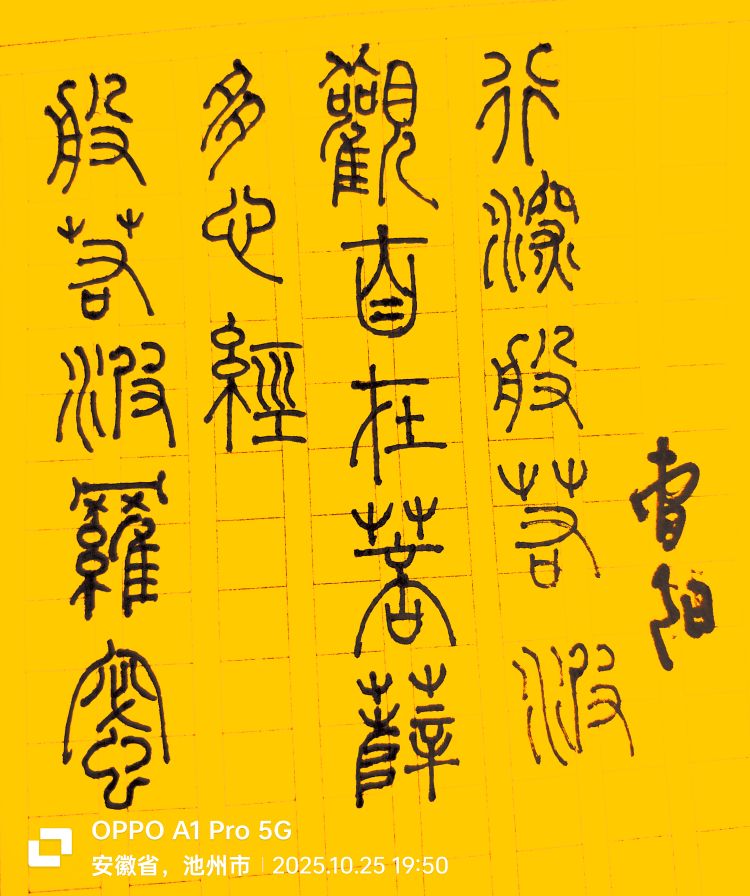 般若波羅蜜
多心經
觀自在菩薛
行深般若波
曹阳
OPPO A1 Pro 5G
安徽省，池州市 | 2025.10.25 19:50